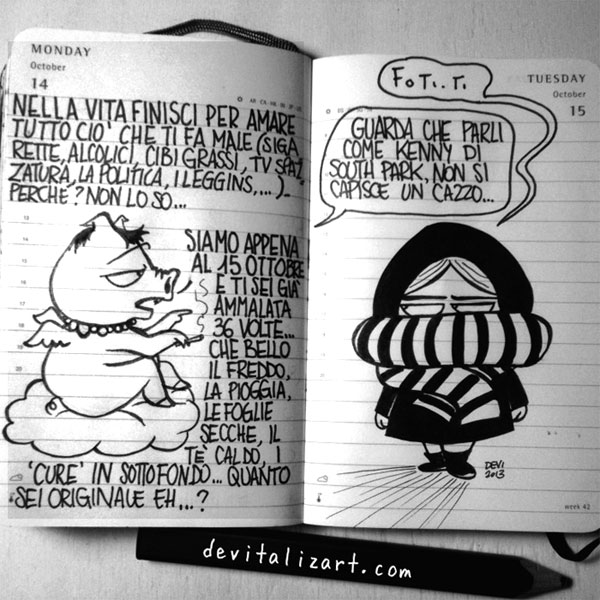 MONDAY
October
14
NELLA VITA FINISCI PER AMARE
TUTTO CIO' CHE TI FA MALE (SIGA
RETTE, ALCOLICI, CIBI GRASSI, TV SPAZ
ZATURA, LA POLITICA, I LEGGINS,...)_
PERCHE'? NON LO SO...
SIAMO APPENA
AL 15 OTTOBRE
E TI SEI GIA'
AMMALATA
36 VOLTE...
CHE BELLO
IL FREDDO,
LA PIOGGIA,
LE FOGLIE
SECCHE, IL
TE' CALDO, I
'CURE' IN SOTTOFONDO... QUANTO
SEI ORIGINALE EH...?
TUESDAY
October
15
FOTI.TI
GUARDA CHE PARLI
COME KENNY DI
SOUTH PARK, NON SI
CAPISCE UN CAZZO...
DEVI
2013
week 42
devitalizart.com